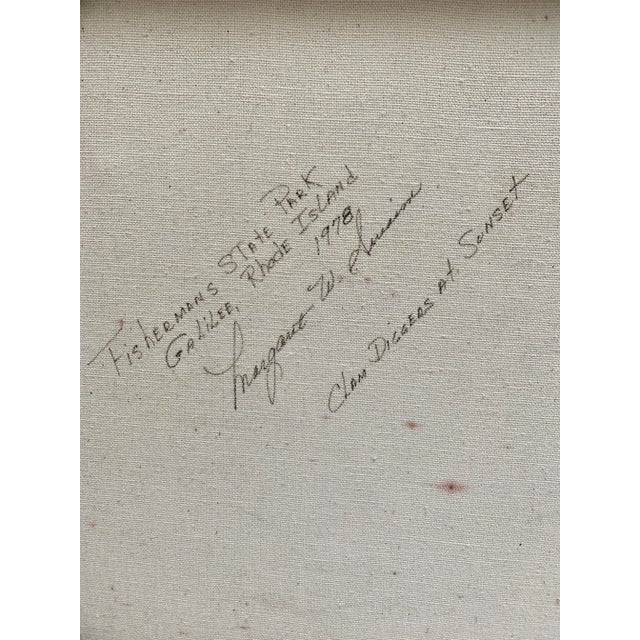 Fishermans State Park
Galilee, Rhode Island
1978
Margaret W.
Clam Diggers at Sunset